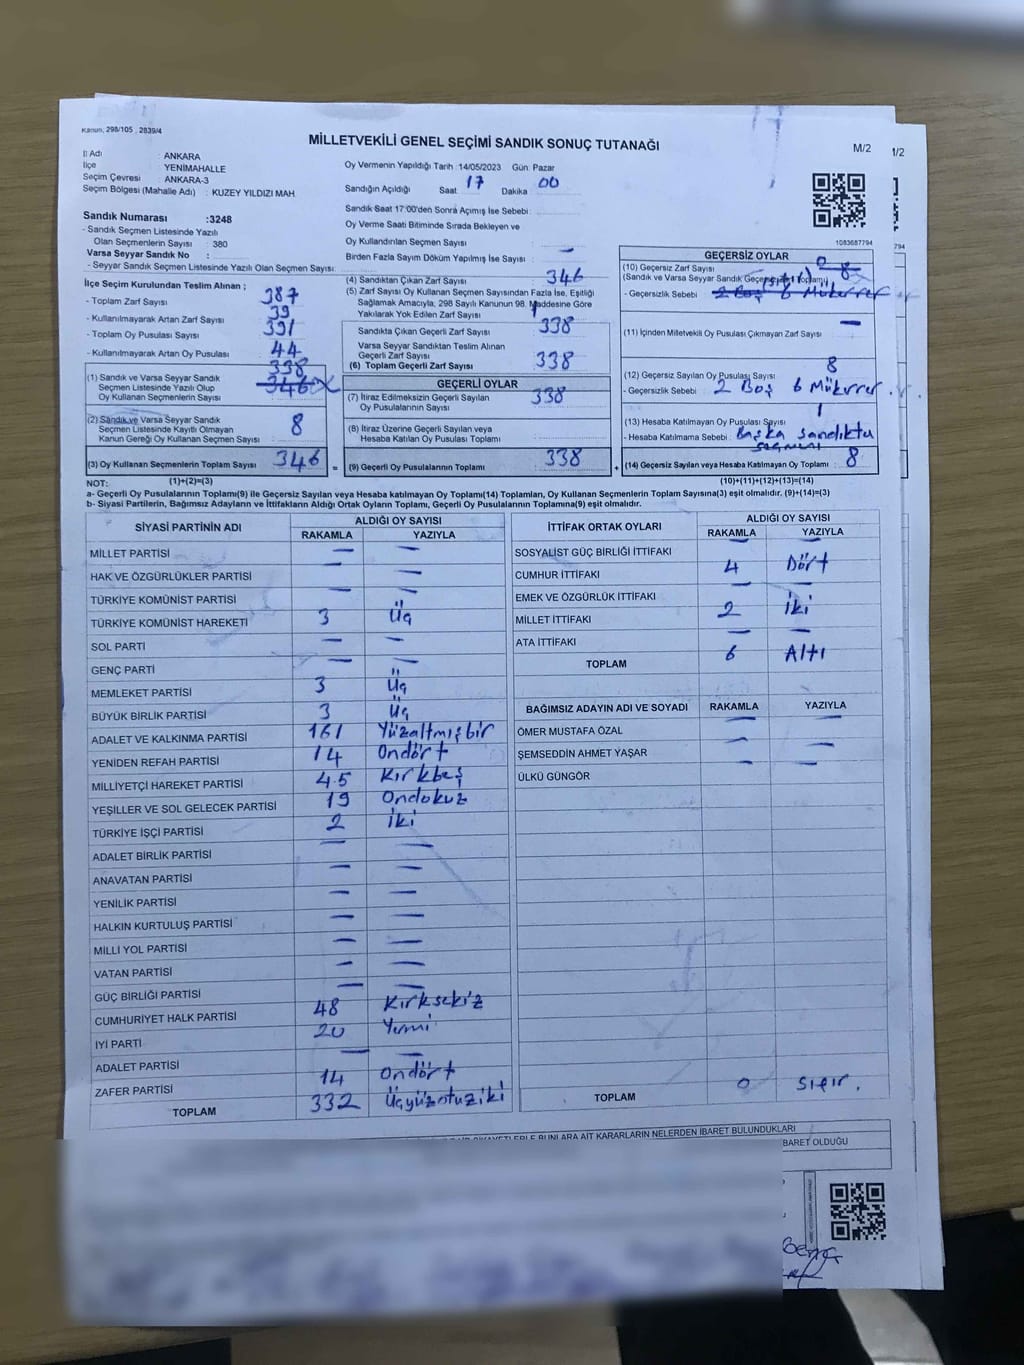 Kanun, 298/105 , 2839/4
MİLLETVEKİLİ GENEL SEÇİMİ SANDIK SONUÇ TUTANAĞI
M/2
1/2
İl Adı : ANKARA
İlçe : YENİMAHALLE
Seçim Çevresi : ANKARA-3
Seçim Bölgesi (Mahalle Adı) : KUZEY YILDIZI MAH.
Sandık Numarası :3248
- Sandık Seçmen Listesinde Yazılı
Olan Seçmenlerin Sayısı : 380
Varsa Seyyar Sandık No :
- Seyyar Sandık Seçmen Listesinde Yazılı Olan Seçmen Sayısı:
İlçe Seçim Kurulundan Teslim Alınan ;
- Toplam Zarf Sayısı 387
- Kullanılmayarak Artan Zarf Sayısı 39
- Toplam Oy Pusulası Sayısı 391
- Kullanılmayarak Artan Oy Pusulası 44
338
(1) Sandık ve Varsa Seyyar Sandık
Seçmen Listesinde Yazılı Olup
Oy Kullanan Seçmenlerin Sayısı 346
(2) Sandık ve Varsa Seyyar Sandık
Seçmen Listesinde Kayıtlı Olmayan
Kanun Gereği Oy Kullanan Seçmen Sayısı 8
(3) Oy Kullanan Seçmenlerin Toplam Sayısı 346
Oy Vermenin Yapıldığı Tarih :14/05/2023 Gün: Pazar
Sandığın Açıldığı Saat 17 Dakika 00
Sandık Saat 17:00'den Sonra Açımış İse Sebebi :
Oy Verme Saati Bitiminde Sırada Bekleyen ve
Oy Kullandırılan Seçmen Sayısı :
Birden Fazla Sayım Döküm Yapılmış İse Sayısı : —
(4) Sandıktan Çıkan Zarf Sayısı 346
(5) Zarf Sayısı Oy Kullanan Seçmen Sayısından Fazla İse, Eşitliği
Sağlamak Amacıyla, 298 Sayılı Kanunun 98. Maddesine Göre
Yakılarak Yok Edilen Zarf Sayısı
Sandıkta Çıkan Geçerli Zarf Sayısı 338
Varsa Seyyar Sandıktan Teslim Alınan
Geçerli Zarf Sayısı
(6) Toplam Geçerli Zarf Sayısı 338
GEÇERLİ OYLAR
(7) İtiraz Edilmeksizin Geçerli Sayılan
Oy Pusulalarının Sayısı 338
(8) İtiraz Üzerine Geçerli Sayılan veya
Hesaba Katılan Oy Pusulası Toplamı
= (9) Geçerli Oy Pusulalarının Toplamı 338
1083687794
794
GEÇERSİZ OYLAR
(10) Geçersiz Zarf Sayısı 0 8
(Sandık ve Varsa Seyyar Sandık Geçersiz Toplamı)
- Geçersizlik Sebebi : 2 Boş 6 Mükerrer
(11) İçinden Milletvekili Oy Pusulası Çıkmayan Zarf Sayısı —
(12) Geçersiz Sayılan Oy Pusulası Sayısı 8
- Geçersizlik Sebebi : 2 Boş 6 Mükerrer
(13) Hesaba Katılmayan Oy Pusulası Sayısı 1
- Hesaba Katılmama Sebebi : Başka sandıkta
seçmeni
+ (14) Geçersiz Sayılan veya Hesaba Katılmayan Oy Toplamı 8
NOT: (1)+(2)=(3) (10)+(11)+(12)+(13)=(14)
a- Geçerli Oy Pusulalarının Toplamı(9) ile Geçersiz Sayılan veya Hesaba katılmayan Oy Toplamı(14) Toplamları, Oy Kullanan Seçmenlerin Toplam Sayısına(3) eşit olmalıdır. (9)+(14)=(3)
b- Siyasi Partilerin, Bağımsız Adayların ve İttifakların Aldığı Ortak Oyların Toplamı, Geçerli Oy Pusulalarının Toplamına(9) eşit olmalıdır.
SİYASİ PARTİNİN ADI ALDIĞI OY SAYISI
RAKAMLA YAZIYLA
MİLLET PARTİSİ — —
HAK VE ÖZGÜRLÜKLER PARTİSİ — —
TÜRKİYE KOMÜNİST PARTİSİ — —
TÜRKİYE KOMÜNİST HAREKETİ 3 Üç
SOL PARTİ — —
GENÇ PARTİ — —
MEMLEKET PARTİSİ 3 Üç
BÜYÜK BİRLİK PARTİSİ 3 Üç
ADALET VE KALKINMA PARTİSİ 161 Yüzaltmışbir
YENİDEN REFAH PARTİSİ 14 Ondört
MİLLİYETÇİ HAREKET PARTİSİ 45 Kırkbeş
YEŞİLLER VE SOL GELECEK PARTİSİ 19 Ondokuz
TÜRKİYE İŞÇİ PARTİSİ 2 iki
ADALET BİRLİK PARTİSİ — —
ANAVATAN PARTİSİ — —
YENİLİK PARTİSİ — —
HALKIN KURTULUŞ PARTİSİ — —
MİLLİ YOL PARTİSİ — —
VATAN PARTİSİ — —
GÜÇ BİRLİĞİ PARTİSİ — —
CUMHURİYET HALK PARTİSİ 48 Kırksekiz
İYİ PARTİ 20 Yirmi
ADALET PARTİSİ — —
ZAFER PARTİSİ 14 Ondört
TOPLAM 332 Üçyüzotuziki
İTTİFAK ORTAK OYLARI ALDIĞI OY SAYISI
RAKAMLA YAZIYLA
SOSYALİST GÜÇ BİRLİĞİ İTTİFAKI — —
CUMHUR İTTİFAKI 4 Dört
EMEK VE ÖZGÜRLÜK İTTİFAKI — —
MİLLET İTTİFAKI 2 iki
ATA İTTİFAKI — —
TOPLAM 6 Altı
BAĞIMSIZ ADAYIN ADI VE SOYADI RAKAMLA YAZIYLA
ÖMER MUSTAFA ÖZAL — —
ŞEMSEDDİN AHMET YAŞAR — —
ÜLKÜ GÜNGÖR — —
TOPLAM 0 sıfır.
BUNLARA AİT KARARLARIN NELERDEN İBARET BULUNDUKLARI
BARET OLDUĞU